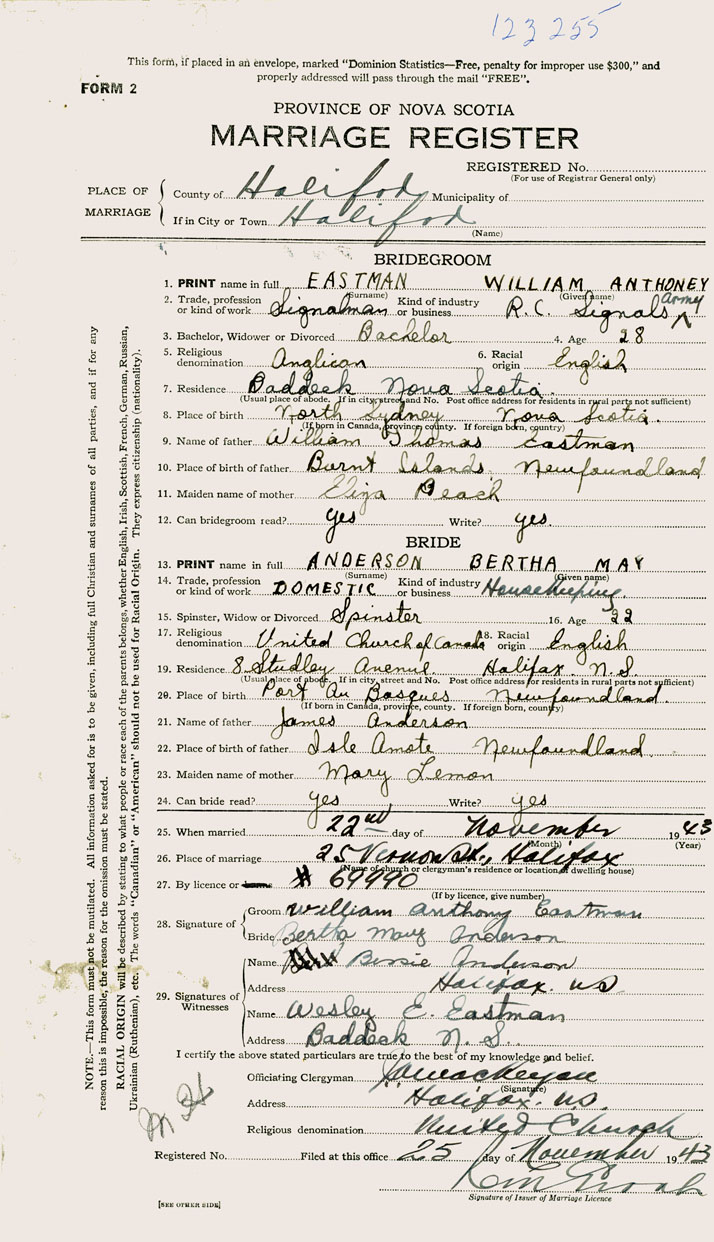 123255
This form, if placed in an envelope, marked "Dominion Statistics—Free, penalty for improper use $300," and
properly addressed will pass through the mail "FREE".
FORM 2
PROVINCE OF NOVA SCOTIA
MARRIAGE REGISTER
REGISTERED No.
(For use of Registrar General only)
PLACE OF MARRIAGE
County of Halifax Municipality of
If in City or Town Halifax
(Name)
BRIDEGROOM
1. PRINT name in full EASTMAN WILLIAM ANTHONEY
(Surname) (Given name)
2. Trade, profession or kind of work Signalman Kind of industry or business R.C. Signals Army
3. Bachelor, Widower or Divorced Bachelor 4. Age 28
5. Religious denomination Anglican 6. Racial origin English
7. Residence Baddeck Nova Scotia.
(Usual place of abode. If in city, street and No. Post office address for residents in rural parts not sufficient)
8. Place of birth North Sydney Nova Scotia.
(If born in Canada, province, county. If foreign born, country)
9. Name of father William Thomas Eastman
10. Place of birth of father Burnt Islands. Newfoundland
11. Maiden name of mother Eliza Peach
12. Can bridegroom read? yes Write? yes.
BRIDE
13. PRINT name in full ANDERSON BERTHA MAY
(Surname) (Given name)
14. Trade, profession or kind of work DOMESTIC Kind of industry or business Housekeeping
15. Spinster, Widow or Divorced Spinster 16. Age 22
17. Religious denomination United Church of Canada 18. Racial origin English
19. Residence 8 Studley Avenue. Halifax N.S.
(Usual place of abode. If in city, street and No. Post office address for residents in rural parts not sufficient)
20. Place of birth Port Au Basques Newfoundland.
(If born in Canada, province, county. If foreign born, country)
21. Name of father James Anderson
22. Place of birth of father Isle Amote Newfoundland.
23. Maiden name of mother Mary Lemon
24. Can bride read? yes Write? yes
25. When married 22nd day of November 1943
(Month) (Year)
26. Place of marriage 25 Vernon St., Halifax
(Name of church or clergyman's residence or location of dwelling house)
27. By licence or banns # 69990
(If by licence, give number)
28. Signature of
Groom William Anthony Eastman
Bride Bertha May Anderson
29. Signatures of Witnesses
Name Bessie Anderson
Address Halifax. NS
Name Wesley E. Eastman
Address Baddeck N.S.
I certify the above stated particulars are true to the best of my knowledge and belief.
Officiating Clergyman
(Signature)
Address Halifax. N.S.
Religious denomination United Church
Registered No. Filed at this office 25 day of November 1943
Signature of Issuer of Marriage Licence
[SEE OTHER SIDE]
NOTE.—This form must not be mutilated. All information asked for is to be given, including full Christian and surnames of all parties, and if for any
reason this is impossible, the reason for the omission must be stated.
RACIAL ORIGIN will be described by stating to what people or race each of the parents belongs, whether English, Irish, Scottish, French, German, Russian,
Ukrainian (Ruthenian), etc. The words "Canadian" or "American" should not be used for Racial Origin. They express citizenship (nationality).